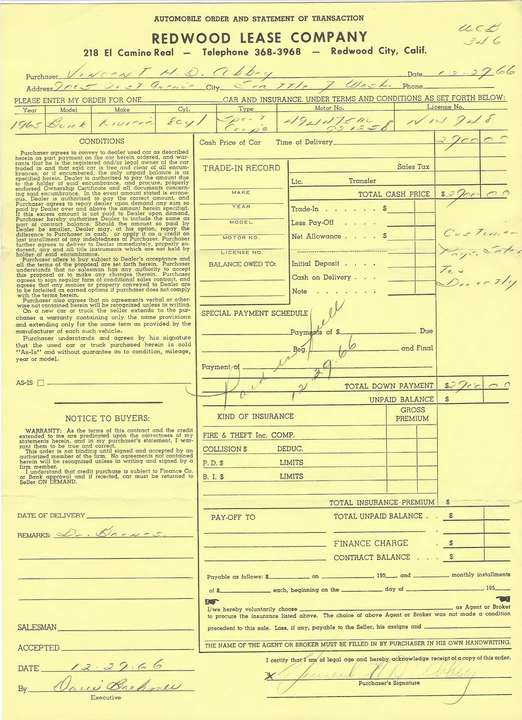 AUTOMOBILE ORDER AND STATEMENT OF TRANSACTION
REDWOOD LEASE COMPANY
218 El Camino Real — Telephone 368-3968 — Redwood City, Calif.
3 of 6
Purchaser Vincent M. D. Abbey Date 12-29-66
Address City Seattle 7 Wash. Phone
PLEASE ENTER MY ORDER FOR ONE CAR AND INSURANCE, UNDER TERMS AND CONDITIONS AS SET FORTH BELOW:
Year Make Model Cyl. Type Motor No. License No.
1965 Buick Riviera 8cyl Sport Coupe
CONDITIONS
Purchaser agrees to convey to dealer used car as described
herein as part payment on the car herein ordered, and war-
rants that he is the registered and/or legal owner of the car
traded in and that said car is free and clear of all encum-
brances; or if encumbered, the only unpaid balance is as
specified herein. Dealer is authorized to pay the amount due
to the holder of said encumbrance, and procure, properly
endorsed Ownership Certificate and all documents concern-
ing said encumbrance. In the event amount stated is errone-
ous, Dealer is authorized to pay the correct amount, and
Purchaser agrees to repay dealer upon demand any sum so
paid by Dealer over and above the amount herein specified.
If this excess amount is not paid to Dealer upon demand,
Purchaser hereby authorizes Dealer to include the same as
part of contract balance. Should the amount so paid by
Dealer be smaller, Dealer may, at his option, repay the
difference to Purchaser in cash, or apply it as a credit on
last installment of any indebtedness of Purchaser. Purchaser
further agrees to deliver to Dealer immediately, properly en-
dorsed, any and all slip instruments which are not held by
holder of said encumbrance.
Purchaser offers is subject to Dealer's acceptance and
all the terms of the proposal are set forth herein. Purchaser
understands that no salesman has any authority to accept
this proposal or to make any changes therein. Purchaser
agrees to sign regular form of conditional sales contract, and
agrees that any monies or property conveyed to Dealer are
to be forfeited as earned options if purchaser does not comply
with the terms herewith.
Purchaser also agrees that no agreements verbal or other-
wise not contained herein will be recognized unless in writing.
On a new car or truck the seller extends to the pur-
chaser a warranty containing only the same provisions
and extending only for the same term as provided by the
manufacturer of each such vehicle.
Purchaser understands and agrees by his signature
that the used car or truck purchased herein is sold
"As-Is" and without guarantee as to condition, mileage,
year or model.
AS-IS
NOTICE TO BUYERS:
WARRANTY: As the terms of this contract and the credit
extended to me are predicated upon the correctness of my
statements herein, and in my purchaser's statement, I war-
rant them to be true and correct.
This order is not binding until signed and accepted by an
authorized member of the firm. No agreements not contained
herein will be recognized unless in writing and signed by a
firm member.
I understand that credit purchase is subject to Finance Co.
or Bank approval and if rejected, car must be returned to
Seller ON DEMAND.
DATE OF DELIVERY
REMARKS:
SALESMAN
ACCEPTED
DATE 12-29-66
By
Executive
Cash Price of Car Time of Delivery
TRADE-IN RECORD
MAKE
YEAR
MODEL
MOTOR NO.
LICENSE NO.
BALANCE OWED TO:
Sales Tax
Lic. Transfer
TOTAL CASH PRICE $
Trade-In $
Less Pay-Off $
Net Allowance $
Initial Deposit $
Cash on Delivery $
Note $
Customer
Pays
Tax
Directly
SPECIAL PAYMENT SCHEDULE
Payments of $ Due
Beg. and Final
Payment of
Paid in full
12-29-66
TOTAL DOWN PAYMENT $
UNPAID BALANCE $
KIND OF INSURANCE GROSS PREMIUM
FIRE & THEFT Inc. COMP.
COLLISION $ DEDUC.
P. D. $ LIMITS
B. I. $ LIMITS
TOTAL INSURANCE PREMIUM $
PAY-OFF TO TOTAL UNPAID BALANCE $
FINANCE CHARGE $
CONTRACT BALANCE $
Payable as follows: $ on , 195 and monthly installments
of $ each, beginning on the day of , 195
I/we hereby voluntarily choose as Agent or Broker
to procure the insurance listed above. The choice of above Agent or Broker was not made a condition
precedent to this sale. Loss, if any, payable to the Seller, his assigns and
THE NAME OF THE AGENT OR BROKER MUST BE FILLED IN BY PURCHASER IN HIS OWN HANDWRITING.
I certify that I am of legal age and hereby acknowledge receipt of a copy of this order.
X
Purchaser's Signature